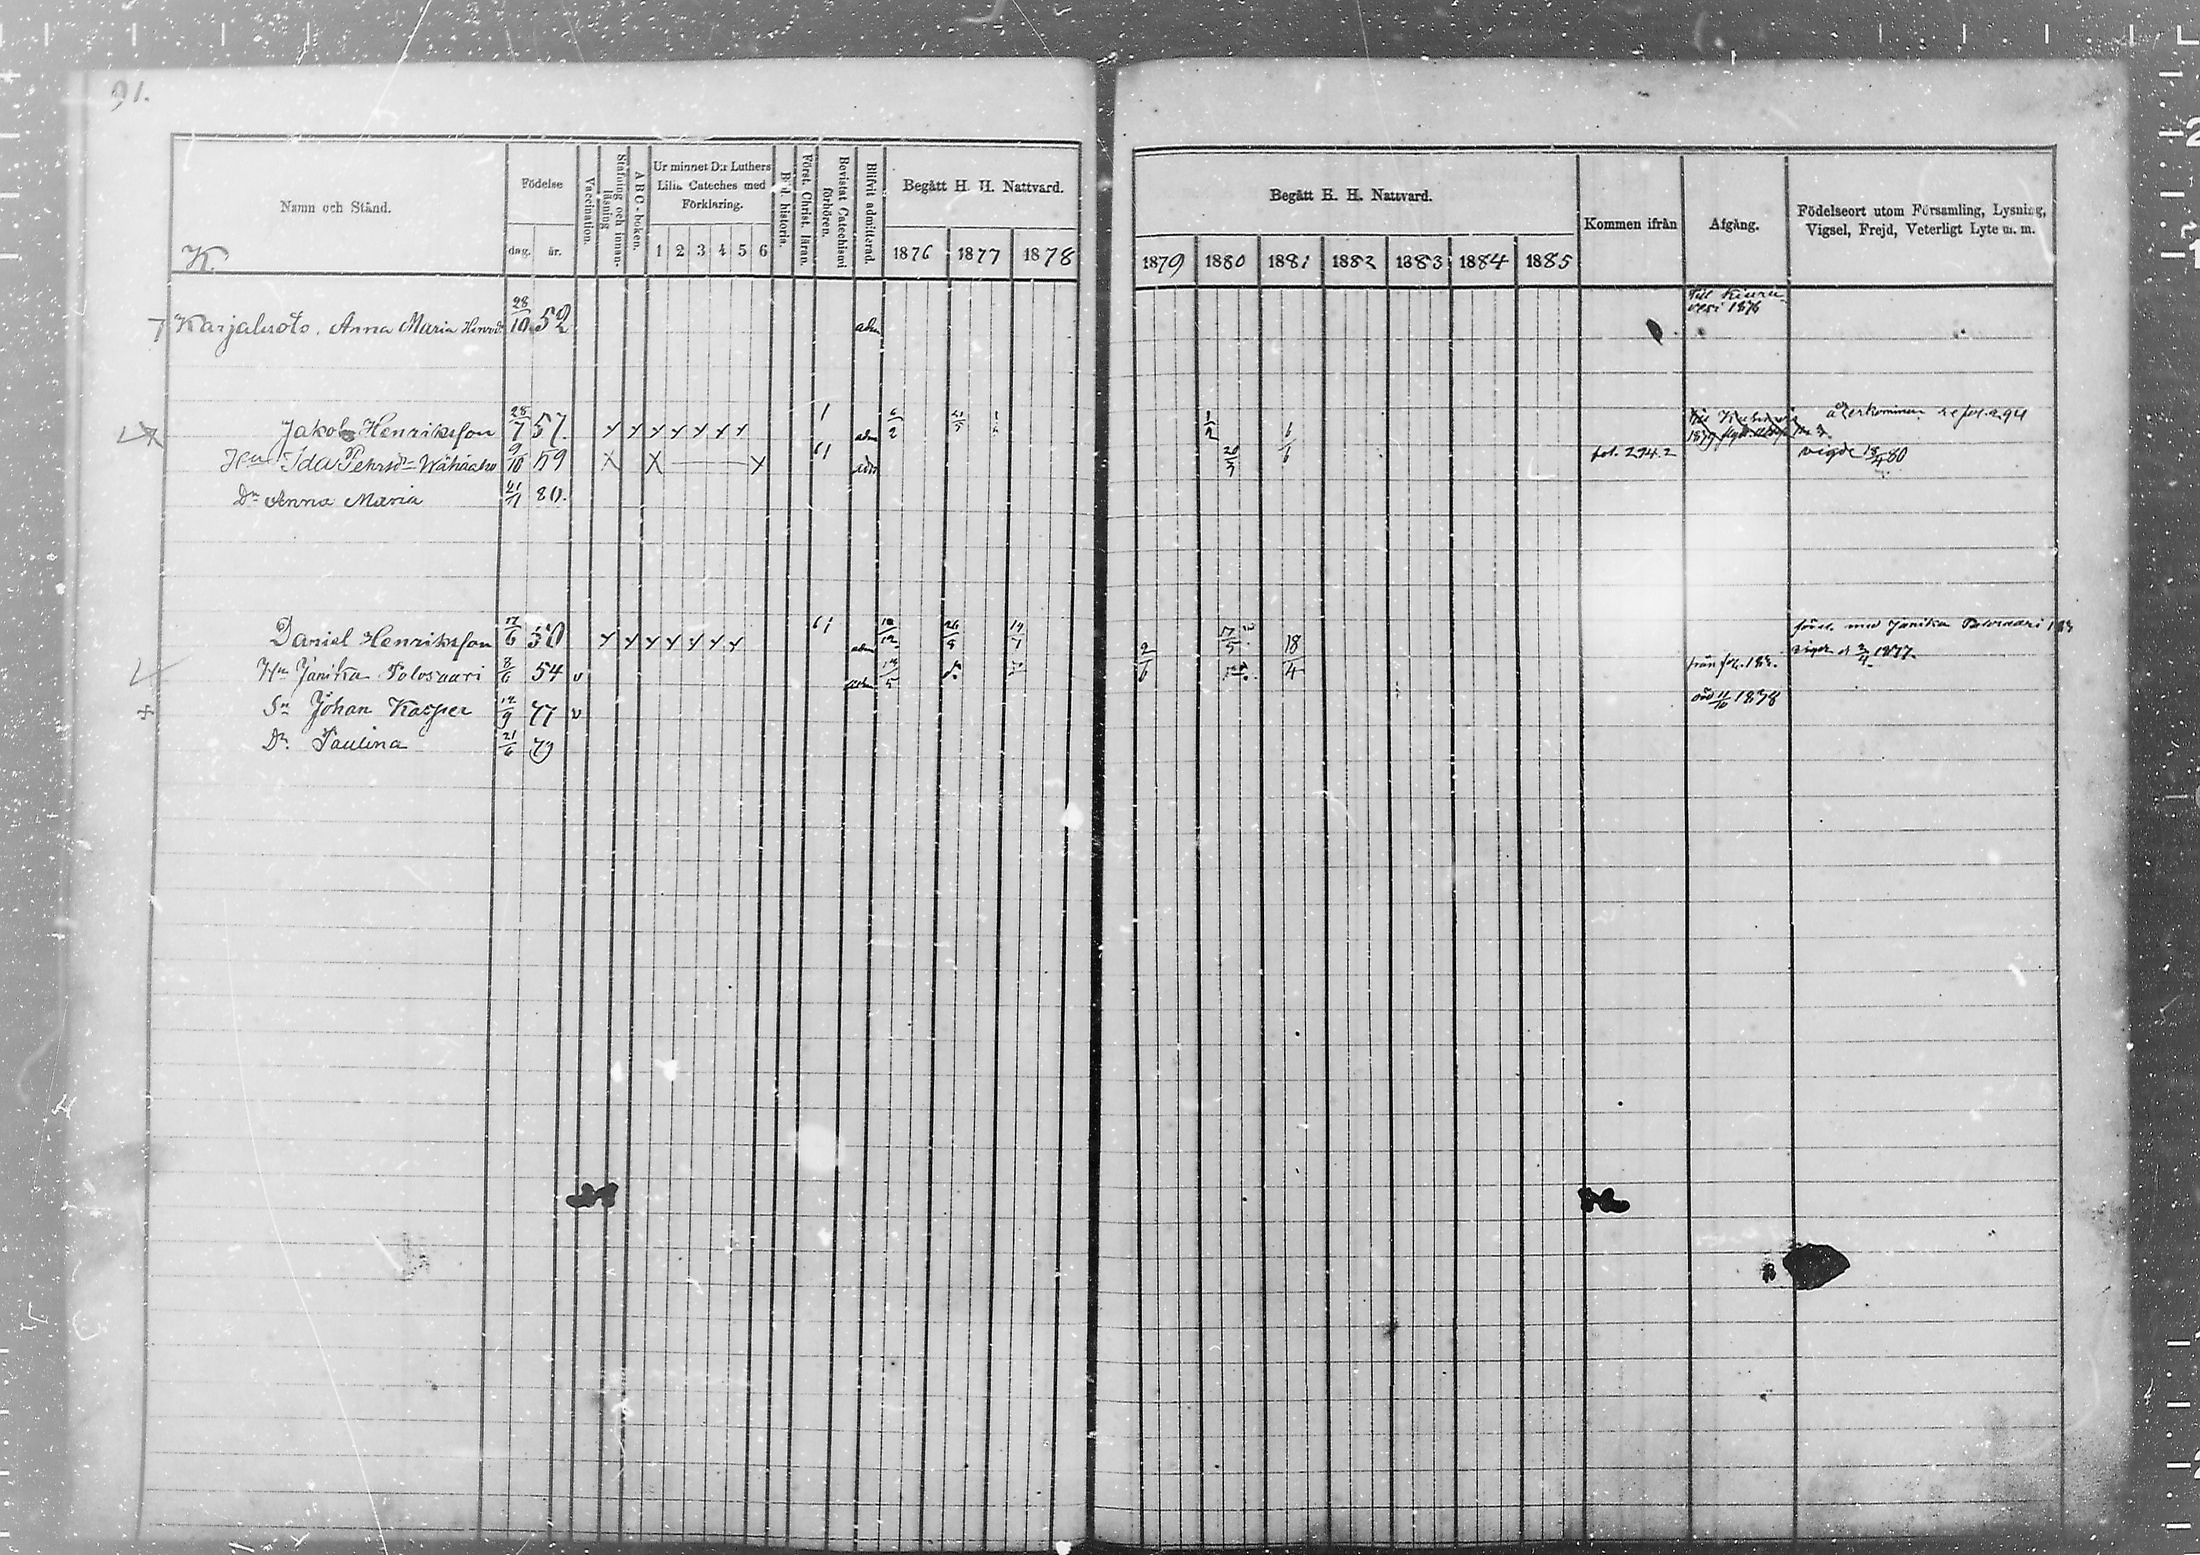 91.
Namn och Stånd.
K.
Födelse
dag. år.
Vaccination.
Stafning och innanläsning
A B C - boken.
Ur minnet D:r Luthers
Lilla Cateches med
Förklaring.
1 2 3 4 5 6
Bibl. historia.
Först. Christ. läran.
Bevistat Catechismi
förhören.
Blifvit admitterad.
Begått H. H. Nattvard.
1876 1877 1878
Begått H. H. Nattvard.
1879 1880 1881 1882 1883 1884 1885
Kommen ifrån
Afgång.
Födelseort utom Församling, Lysning,
Vigsel, Frejd, Veterligt Lyte m. m.
Karjaluoto. Anna Maria 28/10 52 adm Till Kiuru-
vesi 1876
Jakob Henriksson 28/7 57. y y y y y y y 1 adm 6/2 1/2 6/6 1879 återkommen
Hu Ida Pehrsdr 9/10 59 X X y 61 adm 20/7 fol. 294.2 vigde 18/4 80
Dr Anna Maria 21/1 80.
Daniel Henriksson 17/6 50 y y y y y y y 61 adm 18/12 26/8 19/1 2/6 17/5 18/4 med Janika
Hu Janika Polosaari 8/6 54 v adm 13/5 från fol. 183. 2/4 1877.
Sn Johan Kasper 14/9 77 v död 11/10 1878
Dr. Paulina 21/6 79